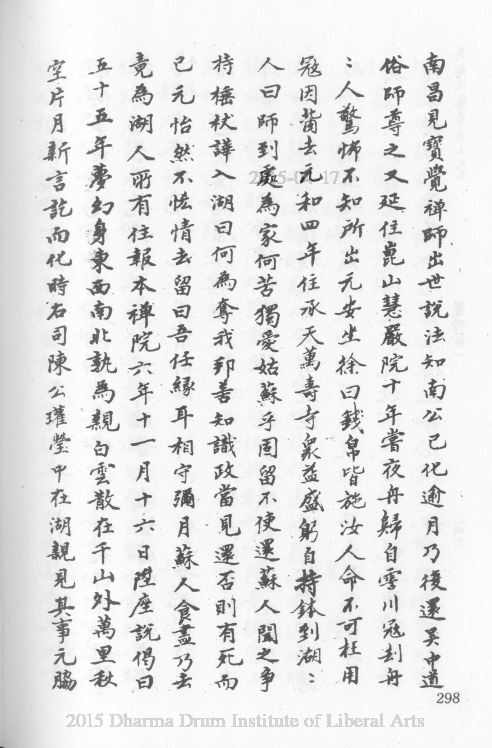 南昌見寶覺禪師出世說法知南公已化逾月乃復還吳中道
俗師尊之又延住崑山慧嚴院十年嘗夜舟歸自霅川寇刦舟
：人驚怖不知所出元安坐徐曰錢帛皆施汝人命不可枉用
寇因背去元和四年住承天萬壽寺眾益盛躬自持鉢到湖：
人曰師到處為家何苦獨愛姑蘇乎固留不使還蘇人聞之爭
持棰杖譁入湖曰何為奪我邦善知識政當見還否則有死而
已元怡然不恡情去留曰吾任緣耳相守彌月蘇人食盡乃去
竟為湖人所有往報本禪院六年十一月十六日陞座說偈曰
五十五年夢幻身東西南北孰為親白雲散在千山外萬里秋
空片月新言訖而化時右司陳公瓘瑩中在湖親見其事元脇
298
2015 Dharma Drum Institute of Liberal Arts